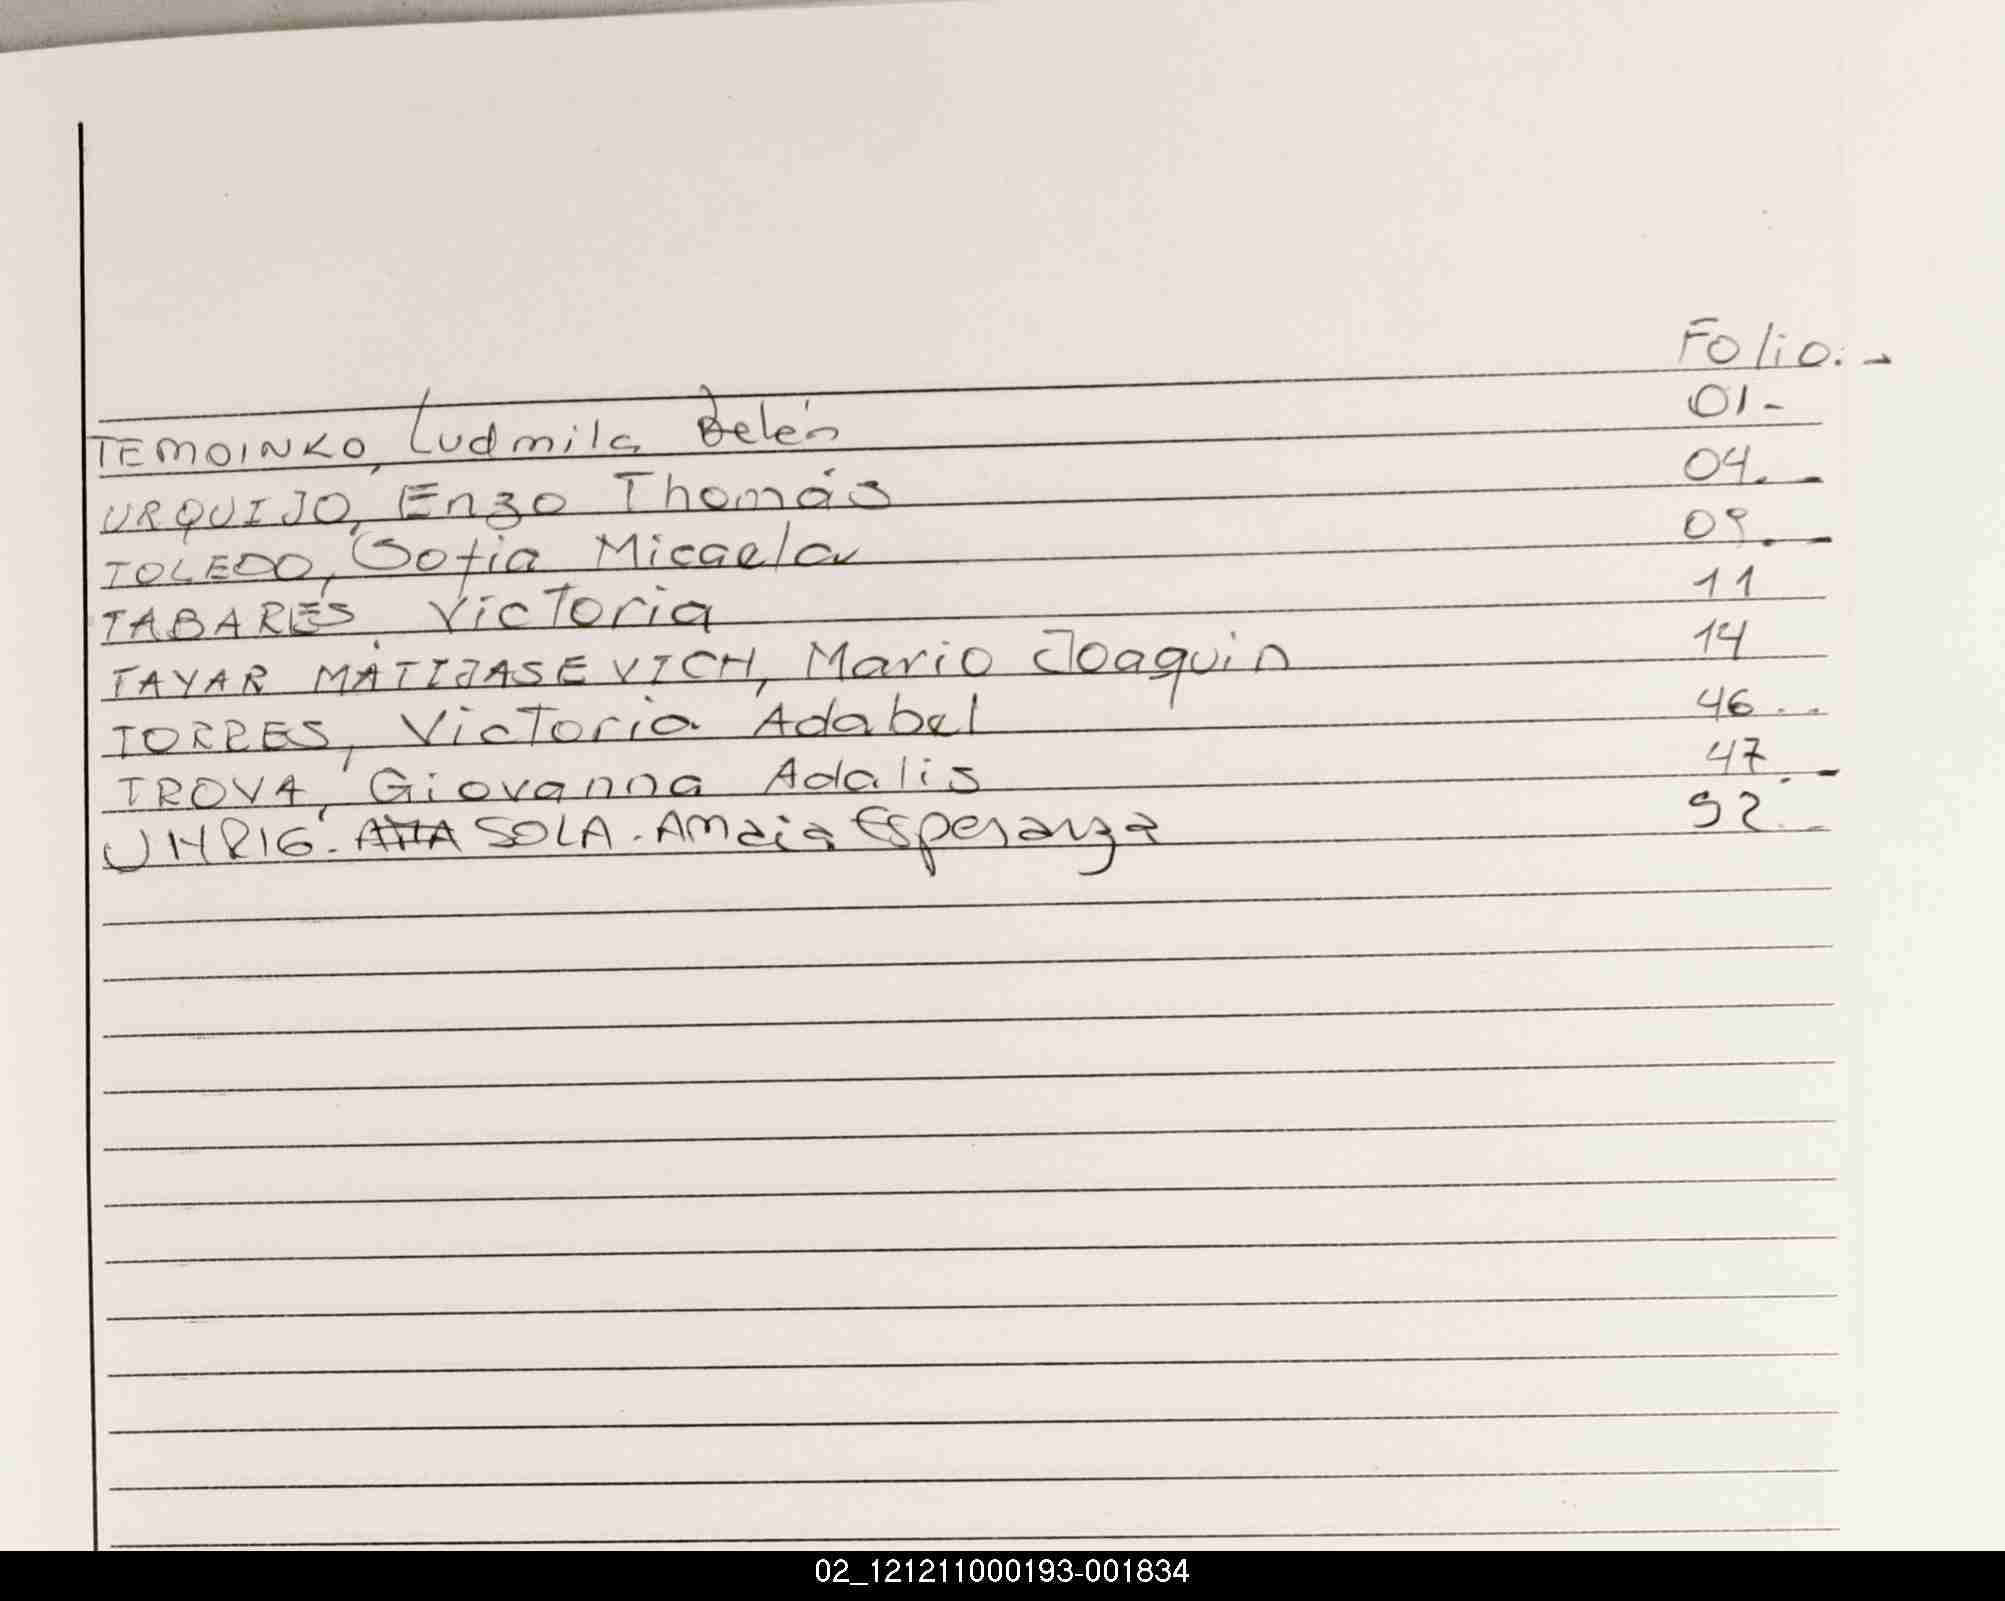 Folio.-
TEMOINKO, Ludmila Belén 01-
URQUIJO, Enzo Thomás 04.-
TOLEDO, Sofia Micaela 09.-
TABARES, Victoria 11
TAYAR MATIJASEVICH, Mario Joaquin 14
TORRES, Victoria Adabel 46..
TROVA, Giovanna Adalis 47.-
UHRIG. SOLA. Amaia Esperanza 92.-
02_121211000193-001834